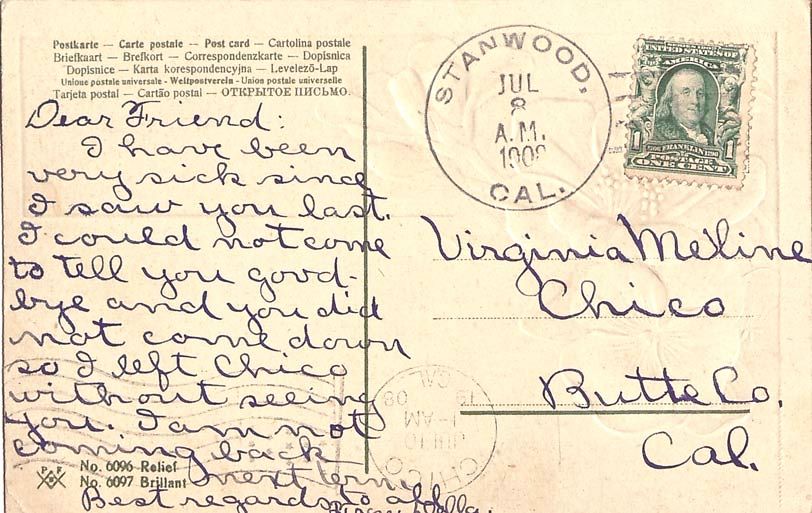 Postkarte — Carte postale — Post card — Cartolina postale
Briefkaart — Brefkort — Correspondenzkarte — Dopisnica
Dopisnice — Karta korespondencyjna — Levelező-Lap
Unione postale universale - Weltpostverein - Union postale universelle
Tarjeta postal — Cartão postal — ОТКРЫТОЕ ПИСЬМО.
Dear Friend:
I have been
very sick since
I saw you last.
I could not come
to tell you good-
bye and you did
not come down
so I left Chico
without seeing
you. I am not
coming back
next term.
Best regards to all
No. 6096 Relief
No. 6097 Brillant
P F
B
STANWOOD,
JUL
8
A.M.
1908
CAL.
UNITED STATES OF
AMERICA
FRANKLIN
POSTAGE
1 ONE CENT 1
Virginia Meline
Chico
Butte Co.
Cal.
CHICO
JUL 10
1-AM
08
CAL